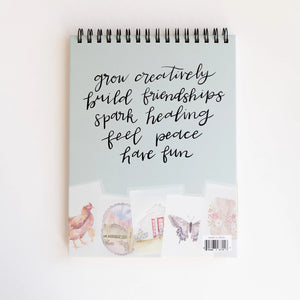 grow creatively
build friendships
spark healing
feel peace
have fun